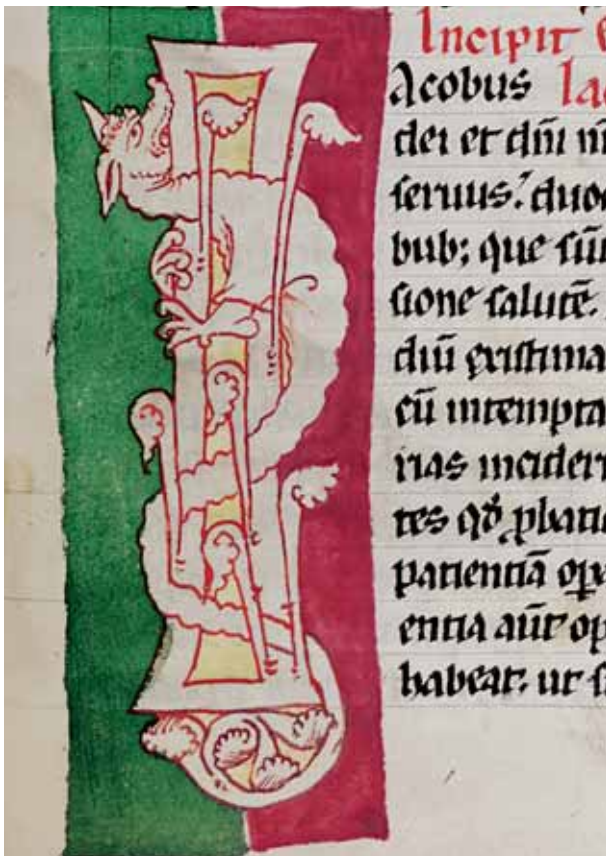 Incipit
Acobus Iac
dei et dn̄i
seruus: duod
bub; que sūt
sione salutē.
diū existima
cū intempta
rias incideri
tes qđ ꝓbati
patientiā oꝑ
entia aūt op
habeat; ut s